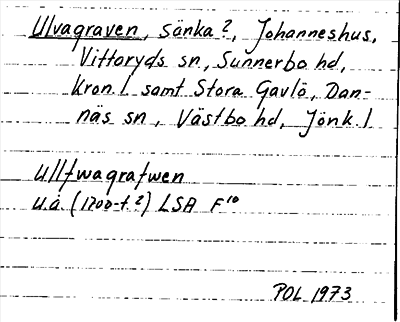 Ulvagraven, sänka?, Johanneshus,
Vittaryds sn, Sunnerbo hd,
Kron.l samt Stora Gavlö, Dan-
näs sn, Västbo hd, Jönk.l
Ulfwagrafwen
u.å. (1700-t?) LSA F10
POL 1973